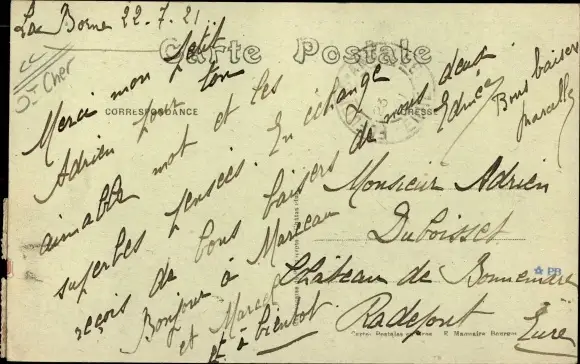 La Borne 22-7-21
Cher
Carte Postale
CORRESPONDANCE
Merci mon petit
Adrien pour ton
aimable mot et tes
superbes pensées. En échange
reçois de bons baisers de nous deux.
Bonjour à Marceau
et Marcel
et à bientôt
Edmée
Bons baisers
Marcelle
Monsieur Adrien
Duboisset
Château de Bonnemare
Radepont
Eure
PB